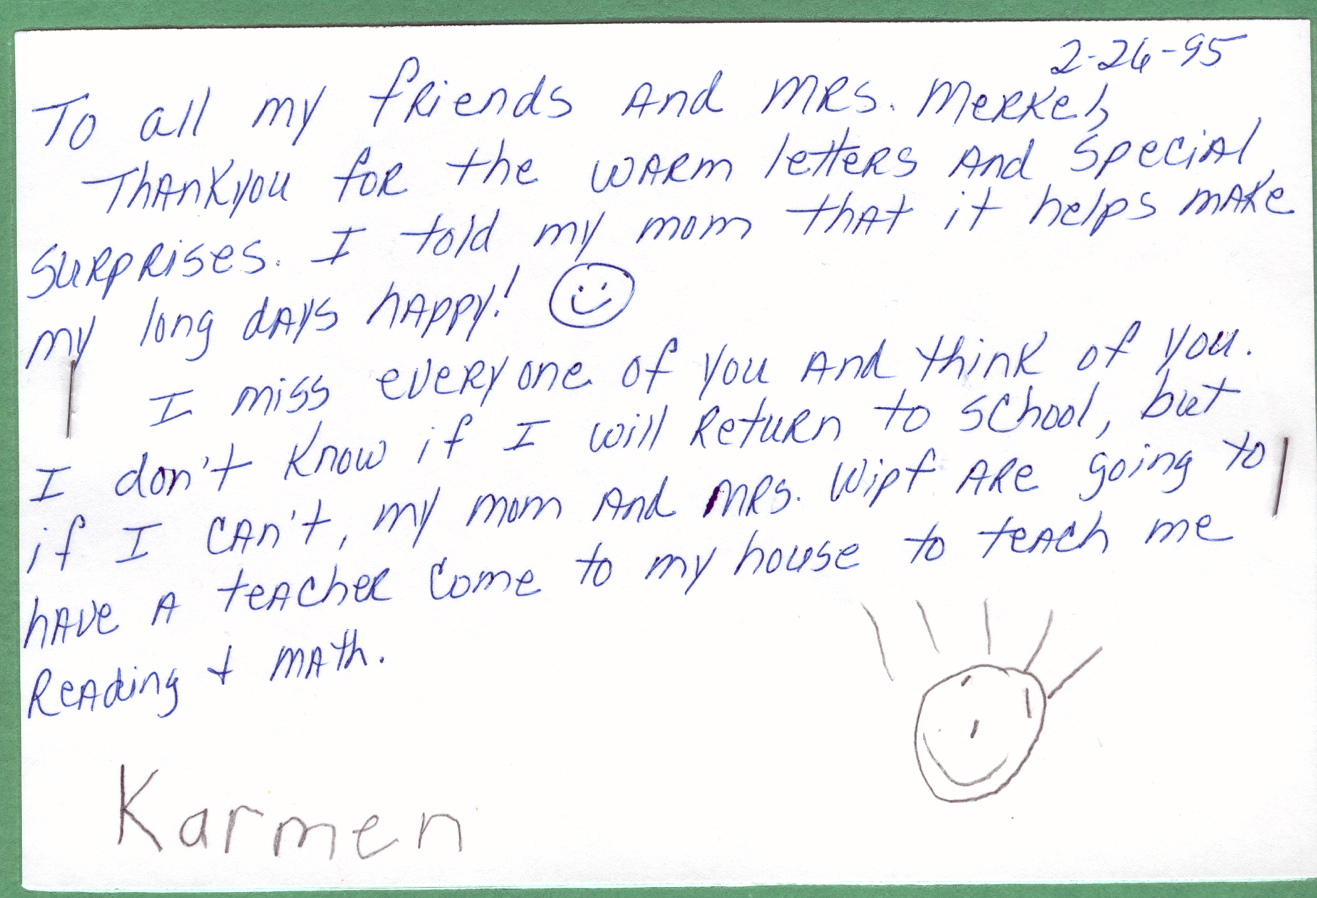 2-26-95
To all my friends And MRS. MeRKel,
ThAnkyou foR the wARm letteRs And SpeciAl
SuRpRises. I told my mom thAt it helps mAKe
my long dAys hAppy!
I miss eveRyone of you And think of you.
I don't know if I will RetuRn to school, but
if I cAn't, my mom And MRS. Wipf ARe going to
hAve A teAcheR come to my house to teAch me
ReAding + mAth.
Karmen